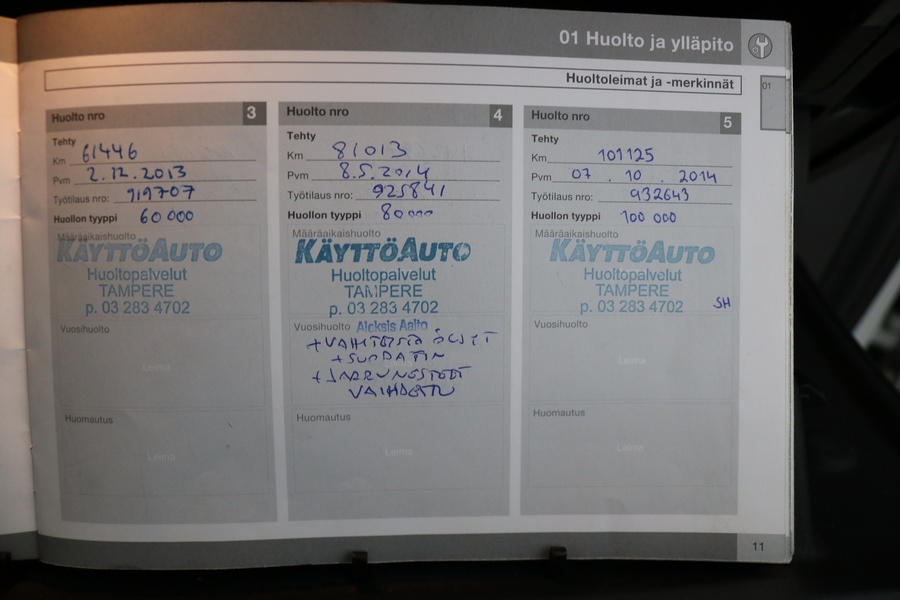 01 Huolto ja ylläpito
Huoltoleimat ja -merkinnät
01
Huolto nro 3
Tehty
Km 61446
Pvm 2.12.2013
Työtilaus nro: 919707
Huollon tyyppi 60 000
Määräaikaishuolto
KÄYTTÖAUTO
Huoltopalvelut
TAMPERE
p. 03 283 4702
Vuosihuolto
Leima
Huomautus
Leima
Huolto nro 4
Tehty
Km 81013
Pvm 8.5.2014
Työtilaus nro: 925841
Huollon tyyppi 80000
Määräaikaishuolto
KÄYTTÖAUTO
Huoltopalvelut
TAMPERE
p. 03 283 4702
Vuosihuolto Aleksis Aalto
+VAIHTEISTO ÖLJYT
+SUODATIN
+JARRUNESTEET
VAIHDETTU
Huomautus
Leima
Huolto nro 5
Tehty
Km 101125
Pvm 07 . 10 . 2014
Työtilaus nro: 932643
Huollon tyyppi 100 000
Määräaikaishuolto
KÄYTTÖAUTO
Huoltopalvelut
TAMPERE
p. 03 283 4702 SH
Vuosihuolto
Leima
Huomautus
Leima
11